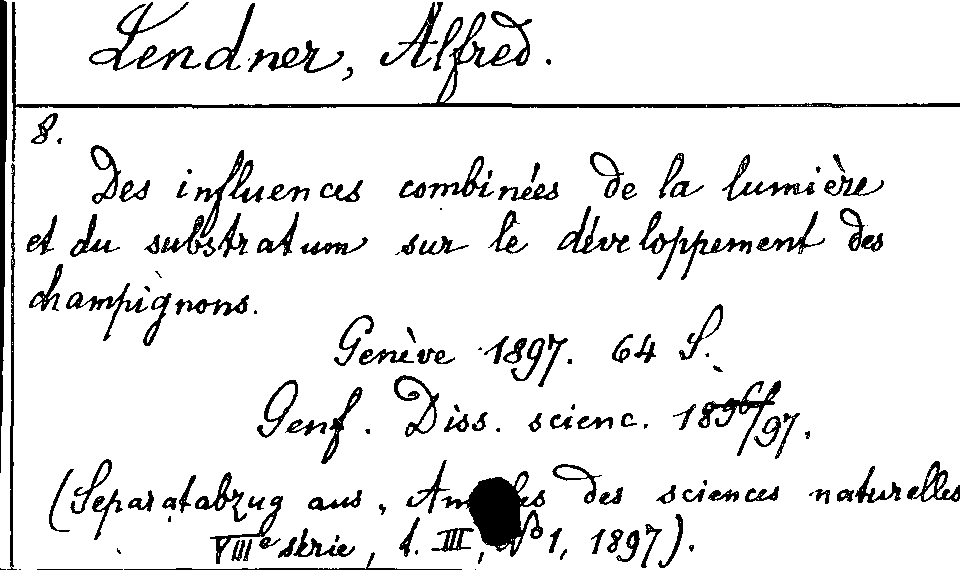 Lendner, Alfred.
8.
Des influences combinées de la lumière
et du substratum sur le développement des
champignons.
Genève 1897. 64 S.
Genf. Diss. scienc. 1896/97.
(Separatabzug aus, Annales des sciences naturelles
VIIIe série, t. III, No 1, 1897).